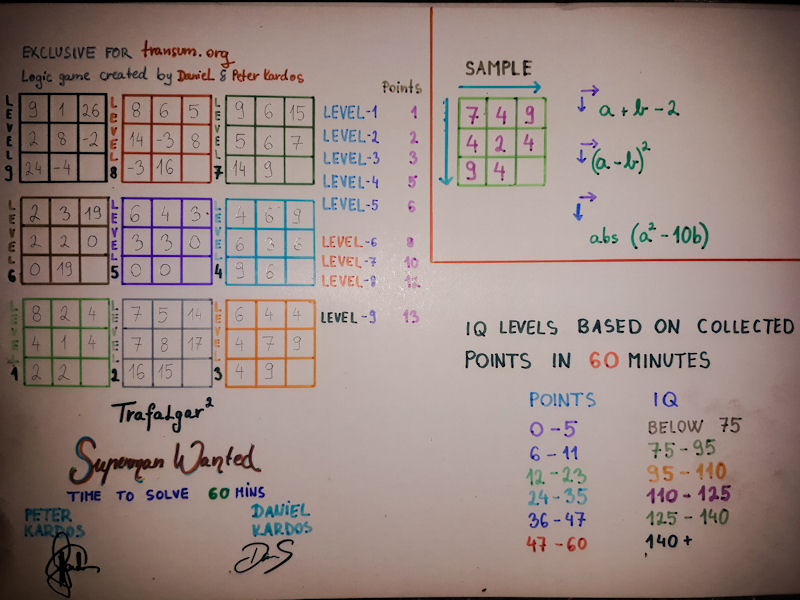 EXCLUSIVE FOR transum.org
Logic game created by Daniel & Peter Kardos
LEVEL 9
9 1 26
2 8 -2
24 -4
LEVEL 8
8 6 5
14 -3 8
-3 16
LEVEL 7
9 6 15
5 6 7
14 9
LEVEL 6
2 3 19
2 2 0
0 19
LEVEL 5
6 4 3
3 3 0
0 0
LEVEL 4
4 6 9
6 3 6
9 6
LEVEL 1
8 2 4
4 1 4
2 2
LEVEL 2
7 5 14
7 8 17
16 15
LEVEL 3
6 4 4
4 7 9
4 9
Points
LEVEL-1 1
LEVEL-2 2
LEVEL-3 3
LEVEL-4 5
LEVEL-5 6
LEVEL-6 8
LEVEL-7 10
LEVEL-8 12
LEVEL-9 13
Trafalgar²
Superman Wanted
TIME TO SOLVE 60 MINS
PETER KARDOS
DANIEL KARDOS
SAMPLE
7 4 9
4 2 4
9 4
a + b - 2
(a - b)²
abs (a² - 10b)
IQ LEVELS BASED ON COLLECTED
POINTS IN 60 MINUTES
POINTS IQ
0 - 5 BELOW 75
6 - 11 75 - 95
12 - 23 95 - 110
24 - 35 110 - 125
36 - 47 125 - 140
47 - 60 140 +